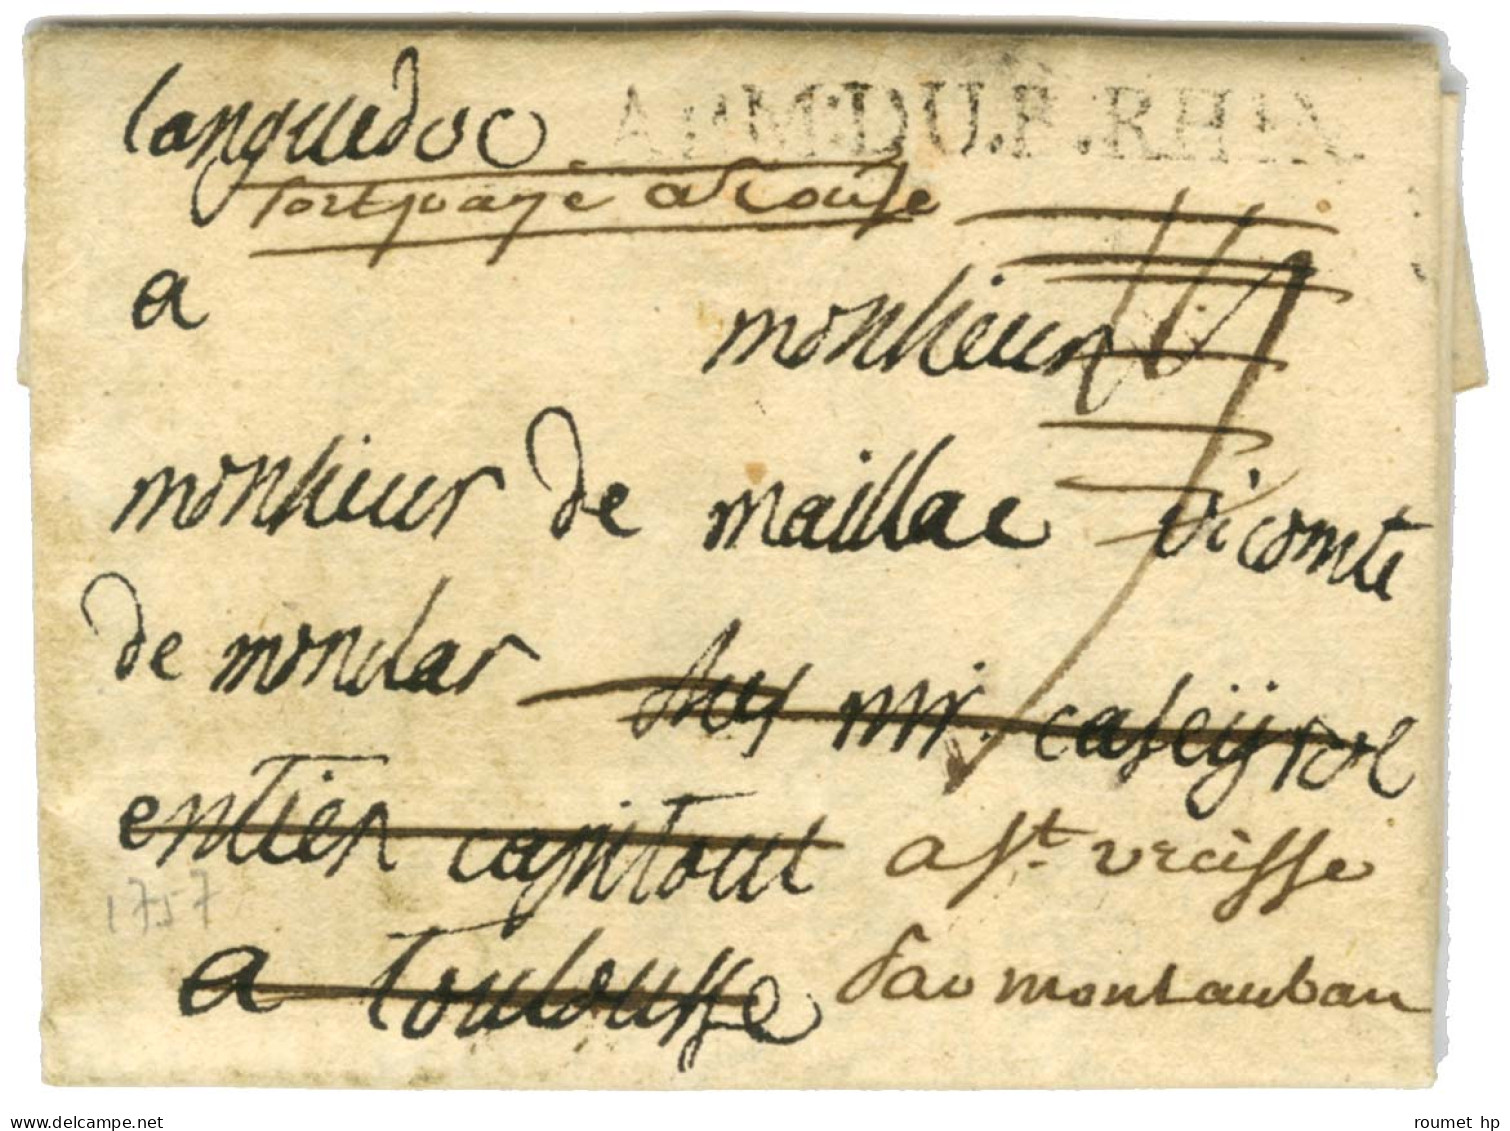 Languedoc ARM:DU.B.RHIN
port payé a Toulse
a monsieur
monsieur de maillac vicomte
de monclar chés mr. caseÿrol
entier capitoul a St. urcisse
1757
a Toulousse par montauban
delcampe.net
roumet hp